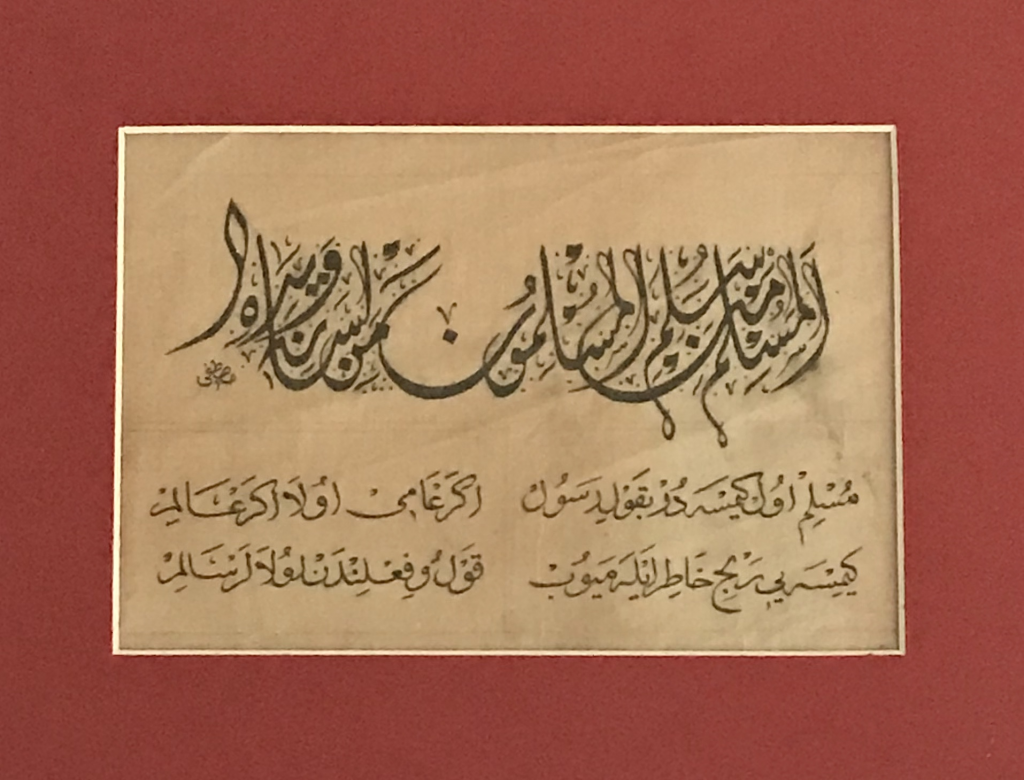 المسلم من سلم المسلمون من لسانه ويده
مصطفى
مُسْلِمْ اوُلْ كِمْسَه دُرْ بِقَوْلِ رَسُولْ اكَرْ عَامِىْ اوُلَا اكَرْ عَالِمْ
كِمْسَه يِى رَنْجِ خَاطِرْ ايْلَه مَيُوبْ قَوْلُ وفِعْلِنْدَنْ اوُلَا لَرْ سَالِمْ